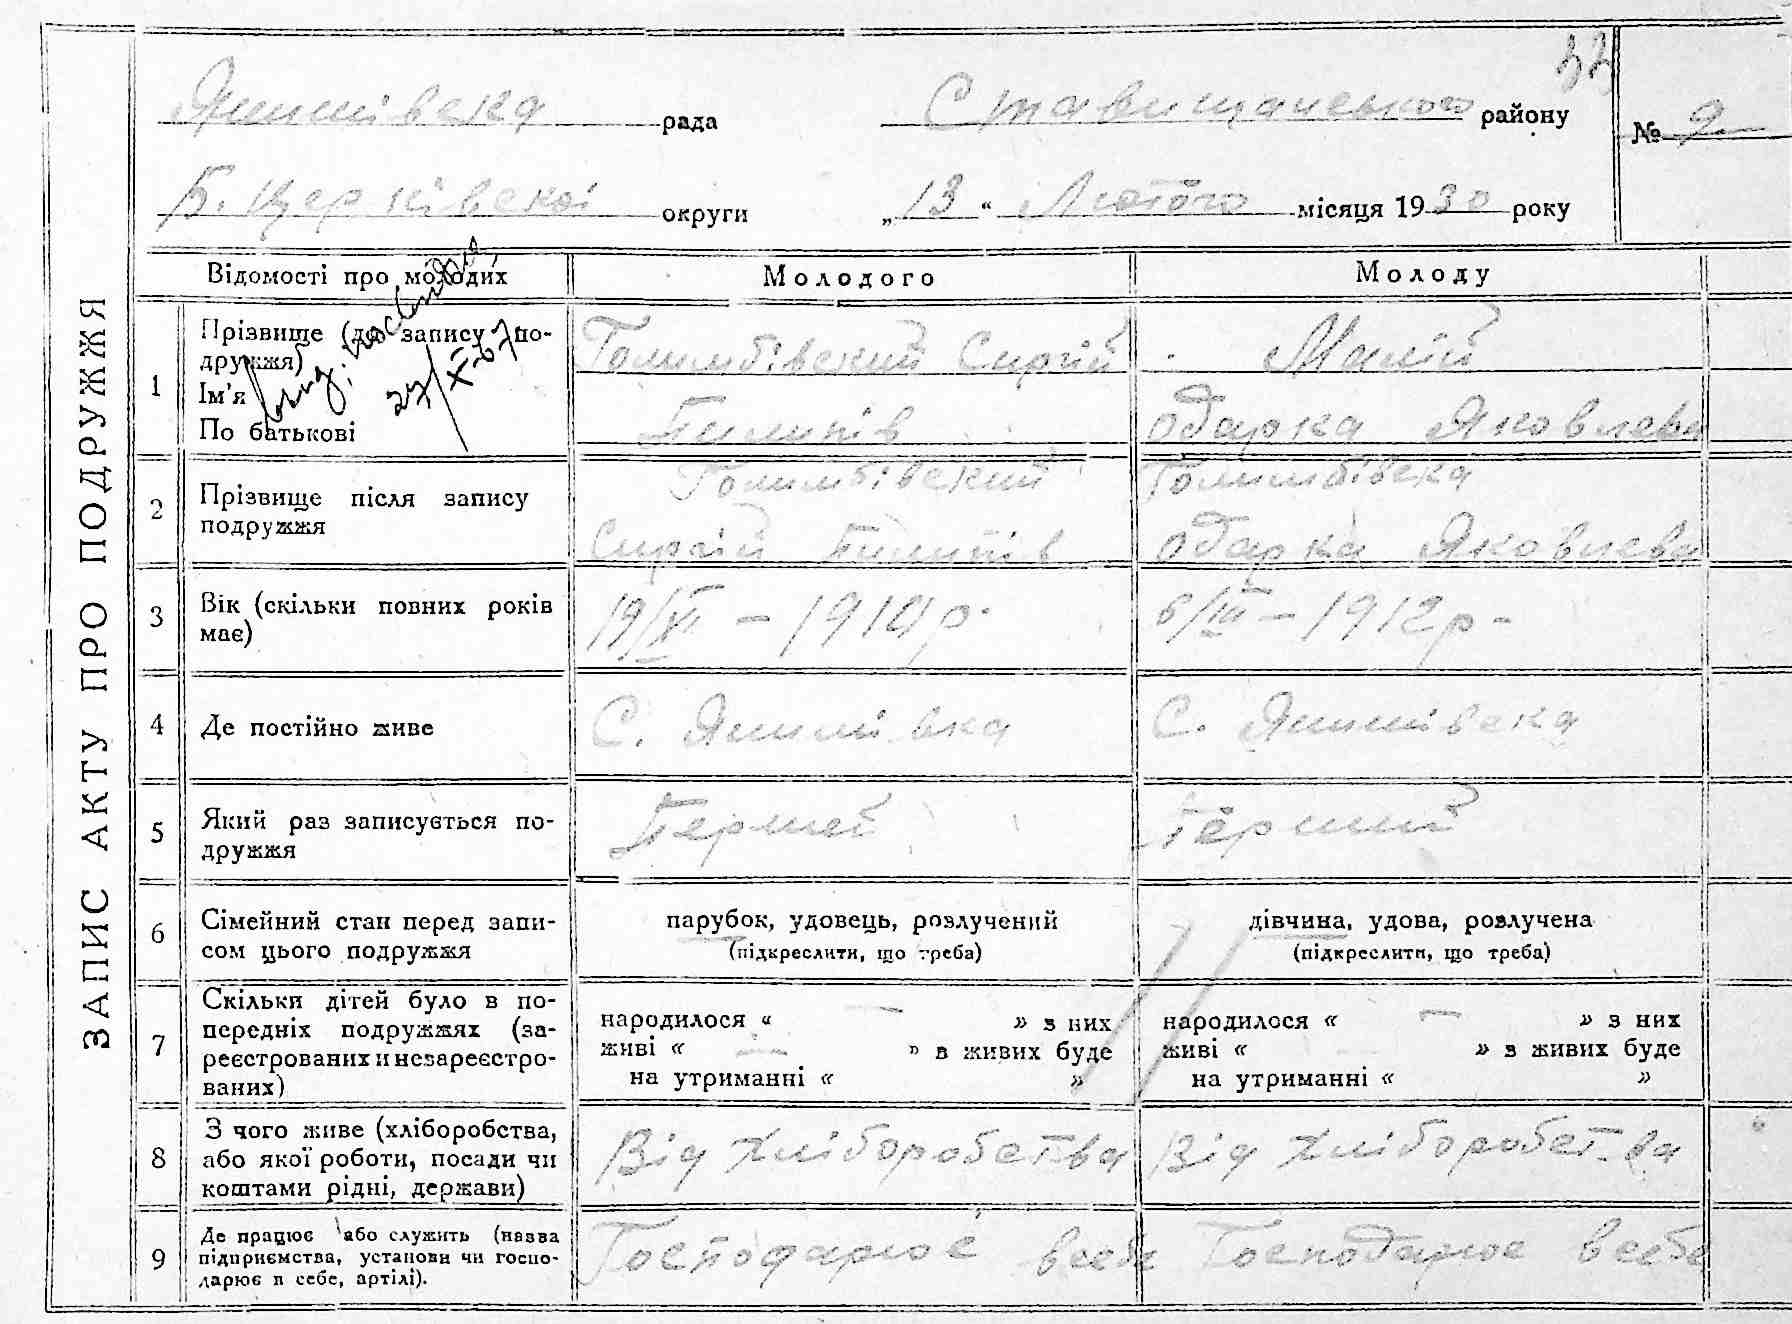 ЗАПИС АКТУ ПРО ПОДРУЖЖЯ
рада Ставищанського району № 9
Б. Церківської округи „13“ Лютого місяця 1930 року
Відомості про молодих Молодого Молоду
1 Прізвище (до запису по-
дружжя)
Ім'я
По батькові
27/XII-67
Голимбівский Сиргій
Пилипів
Малій
Одарка Яковлева
2 Прізвище після запису
подружжя
Голимбівский
Сиргій Пилипів
Голимбівска
Одарка Яковлева
3 Вік (скільки повних років
має)
19/XI – 1910 р. 6/III – 1912 р –
4 Де постійно живе С. С.
5 Який раз записується по-
дружжя
Перший Перший
6 Сімейний стан перед запи-
сом цього подружжя
парубок, удовець, розлучений
(підкреслити, що треба)
дівчина, удова, розлучена
(підкреслити, що треба)
7 Скільки дітей було в по-
передніх подружжях (за-
реєстрованих и незареєстро-
ваних)
народилося « — » з них
живі « — » в живих буде
на утриманні « »
народилося « — » з них
живі « — » з живих буде
на утриманні « »
8 З чого живе (хліборобства,
або якої роботи, посади чи
коштами рідні, держави)
Від хліборобства Від хліборобства
9 Де працює або служить (назва
підприємства, установи чи госпо-
дарює в себе, артілі).
Господарює всебе Господарює всебе